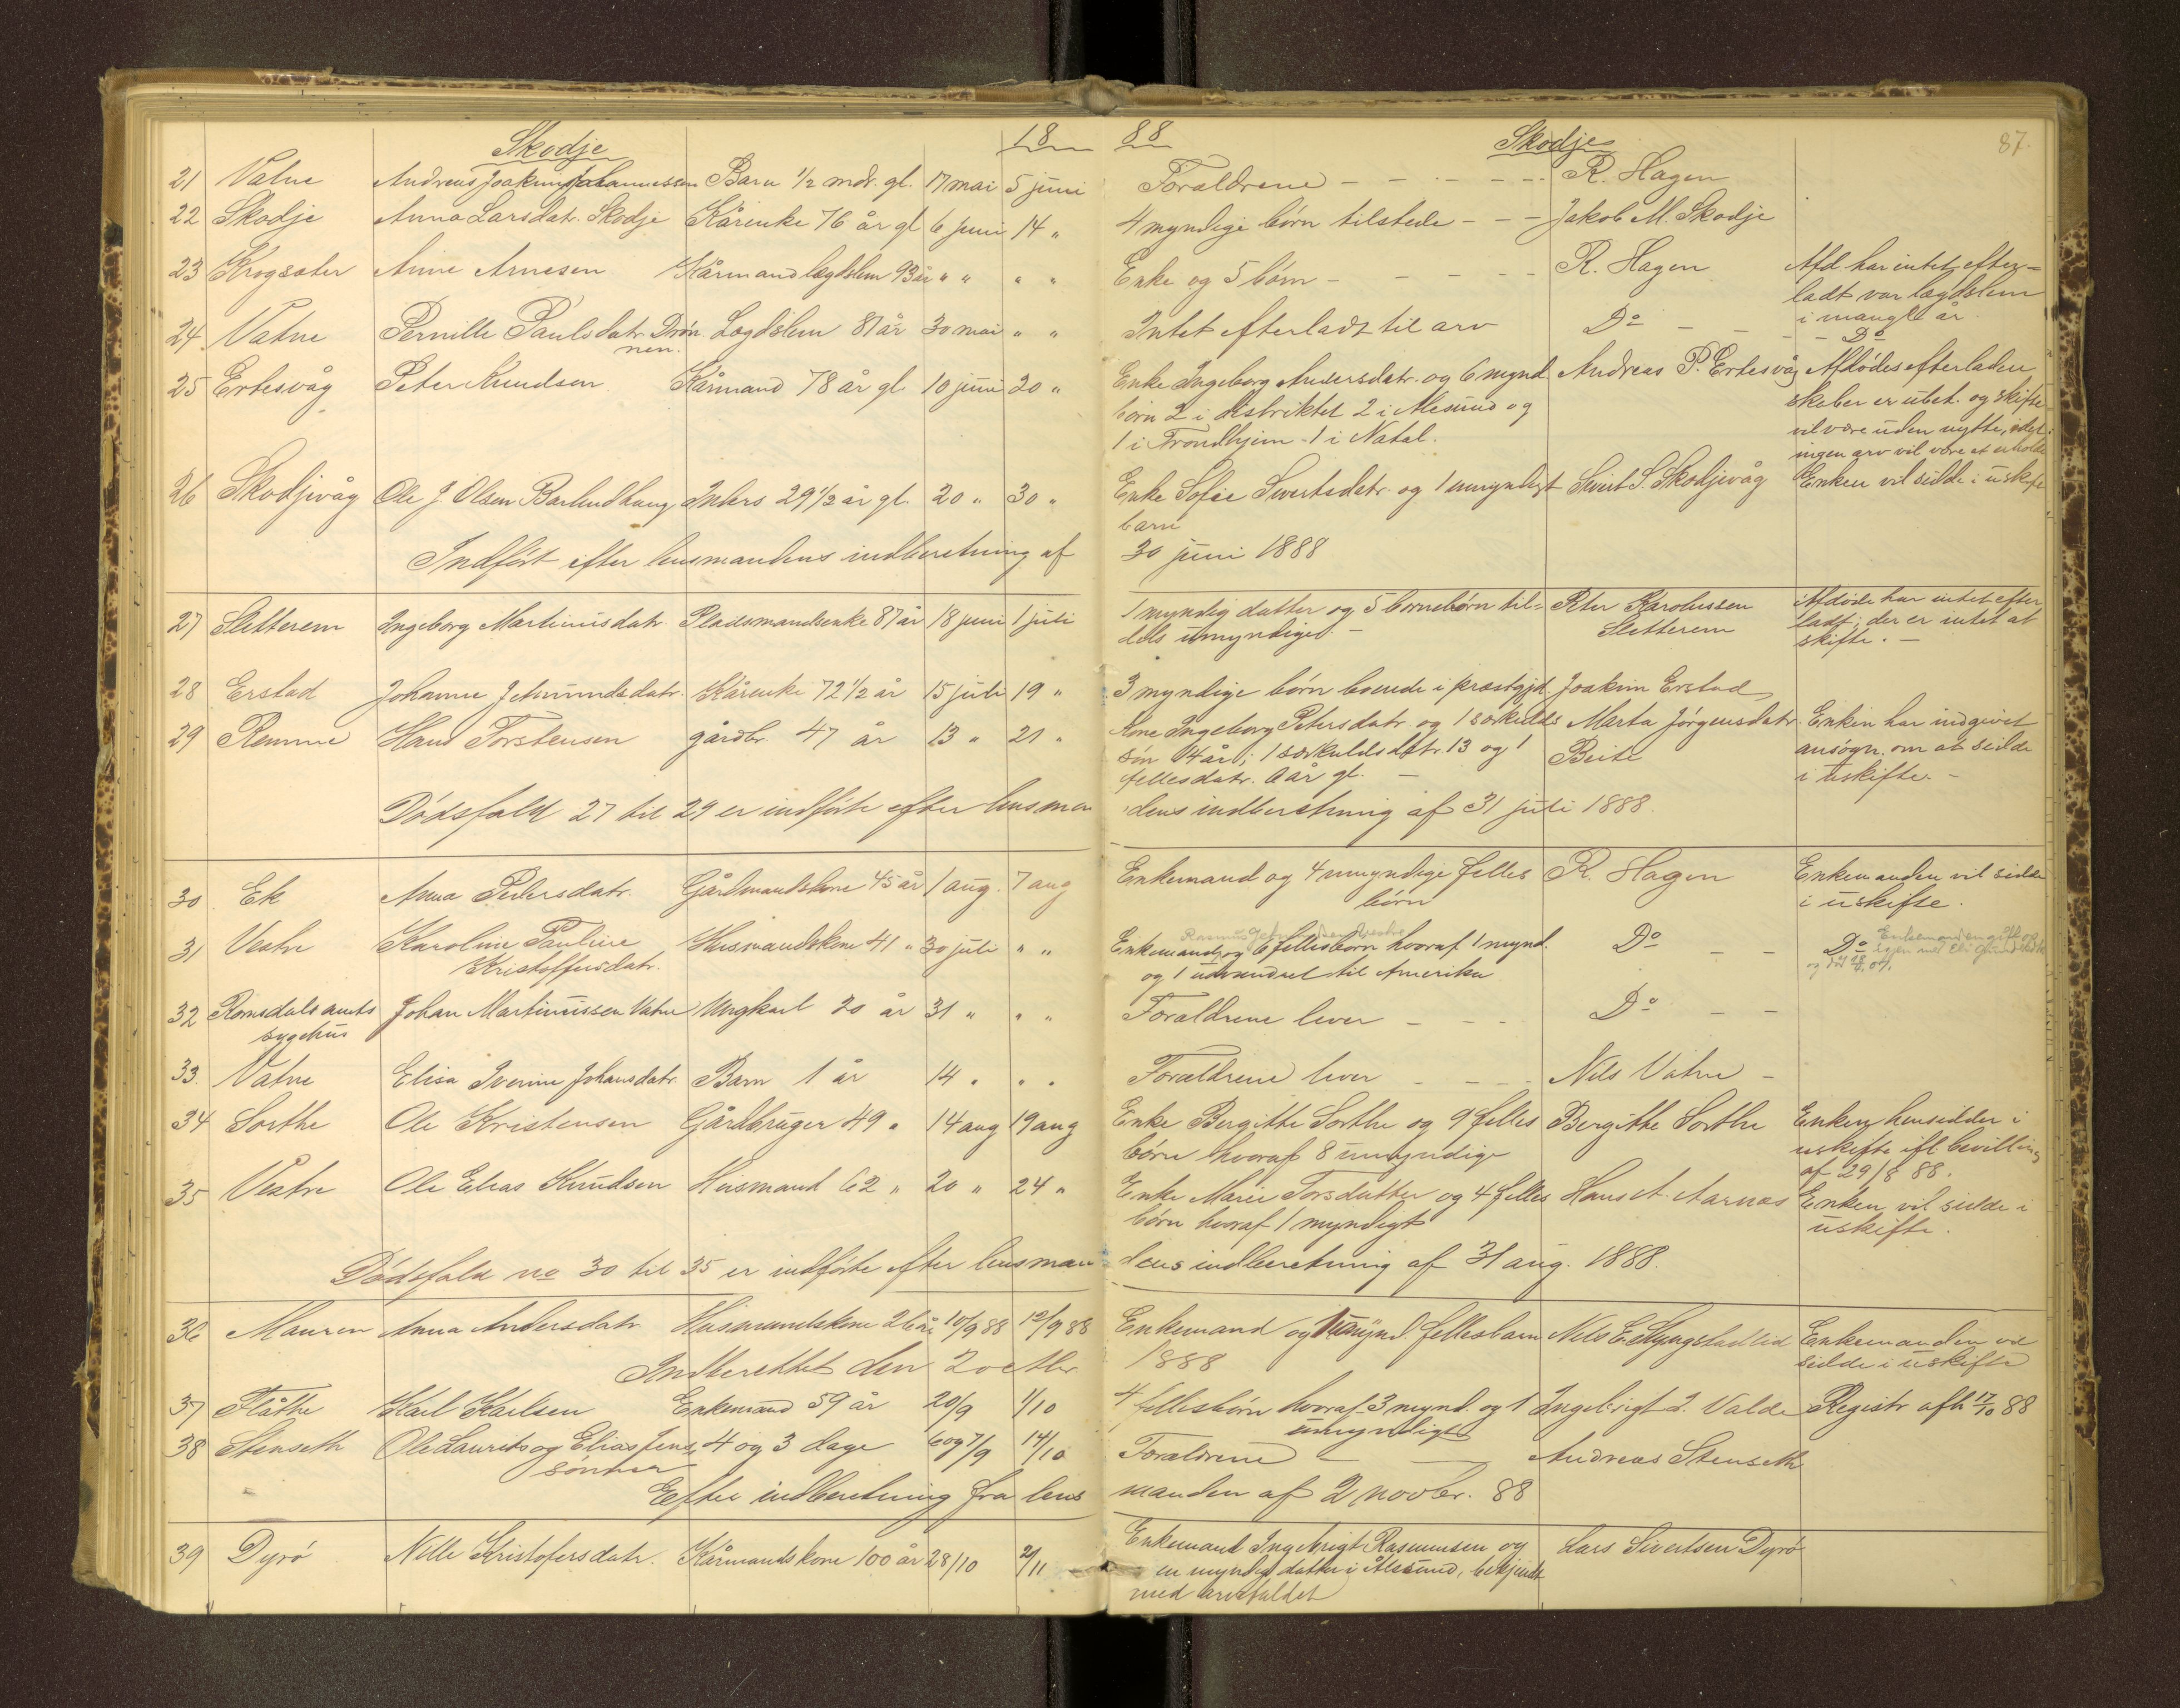 Skodje 18 88 Skodje 87.
21 Vatne Andreas Joakim Johannessen Barn 1/2 mdr. gl. 17 mai 5 juni Forældrene - - - - - R. Hagen
22 Skodje Anna Larsdatr. Skodje Kårenke 76 år gl 6 juni 14 " 4 myndige børn tilstede - - - Jakob M. Skodje
23 Krogsæter Arne Arnesen Kårmand lægdslem 93 år " " " " Enke og 5 børn - - - - - R. Hagen Afd. har intet efter=
ladt var lægdslem
i mangle år.
24 Vatne Pernille Paulsdatr. Drøn Lægdslem 81 år 30 mai " " Intet efterladt til arv Do - - - - Do
nen.
25 Ertesvåg Peter Knudsen Kårmand 78 år gl. 10 juni 20 " Enke Ingeborg Andersdatr. og 6 mynd. Andreas P. Ertesvåg Afdødes efterladen
børn 2 i distriktet 2 i Alesund og skaber er ubet. og skifte
1 i Trondhjem - 1 i Natal. vil være uden nytte, idet
ingen arv vil være at erholde
26 Skodjivåg Ole J. Olsen Barlindhaug Inders 29 1/2 år gl. 20 " 30 " Enke Sofie Sivertsdatr. og 1 umyndigt Sivert S. Skodjevåg Enken vil sidde i uskifte
barn
Indført efter lensmandens indberetning af 30 juni 1888
27 Sletterem Ingeborg Martinusdatr. Pladsmandsenke 87 år 18 juni 1 juli 1 myndig datter og 5 børnebørn til= Peter Karolussen Afdøde har intet efter
dels umyndige. - Sletterem ladt; der er intet at
skifte. -
28 Erstad Johanne Jetmundsdatr. Kårenke 72 1/2 år 15 juli 19 " 3 myndige børn boende i præstgjd. Joakim Erstad
29 Remme Hans Torstensen gårdbr. 47 år 13 " 21 " Kone Ingeborg Petersdatr. og 1 særkulds Marta Jørgensdatr. Enken har indgivet
søn 14 år; 1 særkulds datr. 13 og 1 Beite ansøgn. om at sidde
fellesdatr. år gl. - i uskifte. -
Dødsfald 27 til 29 er indførte efter lensman dens indberetning af 31 juli 1888.
30 Ek Anna Pedersdatr. Gårdmandskone 45 år 1 aug. 7 aug Enkemand og 4 umyndige felles R. Hagen Enkemanden vil sidde
børn i uskifte.
31 Vestre Karoline Pauline Husmandskone 41 " 30 juli " " Enkemand og 6 fellesbørn hvoraf 1 mynd. Do - - Do
Kristoffersdatr. og 1 udvandret til Amerika
32 Romsdals amts Johan Martinussen Vatne Ungkarl 20 år 31 " " " Forældrene lever - - - Do - -
sygehus
33. Vatne Elisa Iverine Johansdatr. Barn 1 år 14 " " " Forældrene lever - - - Nils Vatne -
34 Sorthe Ole Kristensen Gårdbruger 49 " 14 aug 19 aug Enke Bergitte Sorthe og 9 felles Bergitte Sorthe Enken hensidder i
børn hvoraf 8 umyndige uskifte ifl. bevilling
af 29/8 88.
35 Vestre Ole Elias Knudsen Husmand 62 " 20 " 24 " Enke Marie Torsdatter og 4 felles Hans A. Aarnæs Enken vil sidde i
børn hvoraf 1 myndigt uskifte.
Dødsfald no 30 til 35 er indførte efter lensman dens indberetning af 31 aug. 1888.
36 Mauren Anna Andersdatr. Husmandskone 26 år 10/9 88 12/9 88 Enkemand og 1 umynd. fellesbarn Nils E. Slyngstadlid Enkemanden vil
sidde i uskifte
Indberettet den 2 octbr 1888
37 Flåthe Karl Karlsen Enkemand 59 år 20/9 1/10 4 fellesbørn hvoraf 3 mynd. og 1 Ingebrigt L. Valde Registr. afh. 17/10 88
umyndigt
38 Stenseth Ole Laurits og Elias Jens 4 og 3 dage 6 og 7/9 14/10 Forældrene - - Andreas Stenseth
sønner
Efter indberetning fra lens manden af 2 novbr. 88
39 Dyrø Nille Kristofersdatr. Kårmandskone 100 år 28/10 2/11 Enkemand Ingebrigt Rasmussen og Lars Sivertsen Dyrø
en myndig datter i Ålesund, bekjendt
med arvefaldet